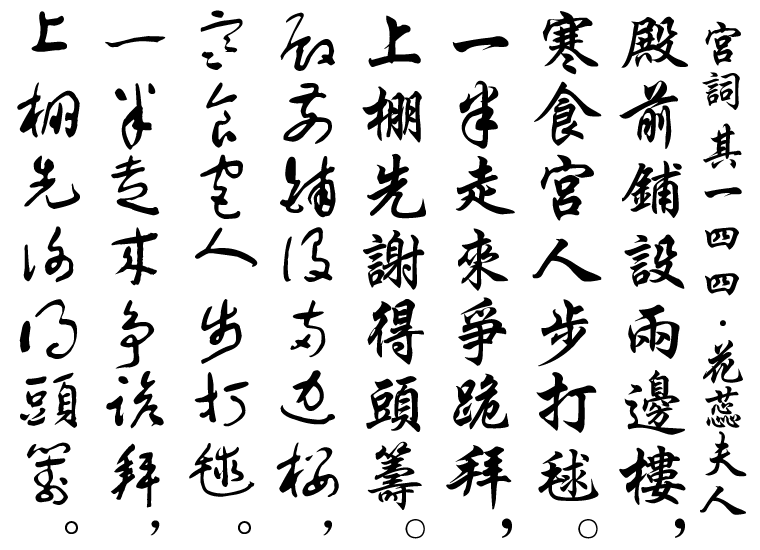 宮詞 其一四四・花蕊夫人
殿前鋪設兩邊樓，
寒食宮人步打毬。
一半走來爭跪拜，
上棚先謝得頭籌。
殿前鋪設兩邊樓，
寒食宮人步打毬。
一半走來爭跪拜，
上棚先謝得頭籌。